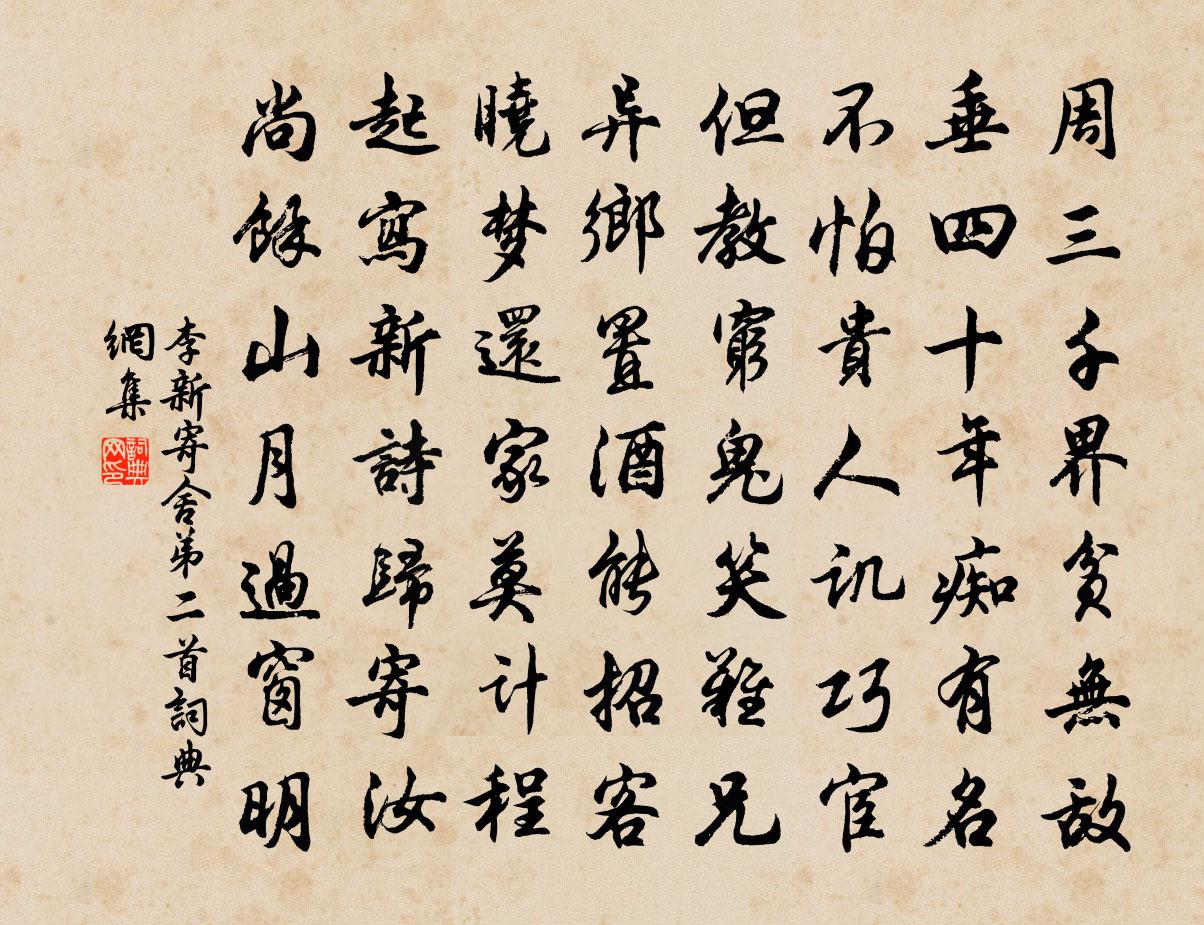 周三千界貧無敵
垂四十年痴有名
不怕貴人訊巧宦
但教窮鬼笑難兄
异鄉置酒能招客
曉梦還家莫計程
起寫新詩歸寄汝
尚餘山月過窗明
李新寄舍弟二首詞典
網集
詞典
网印